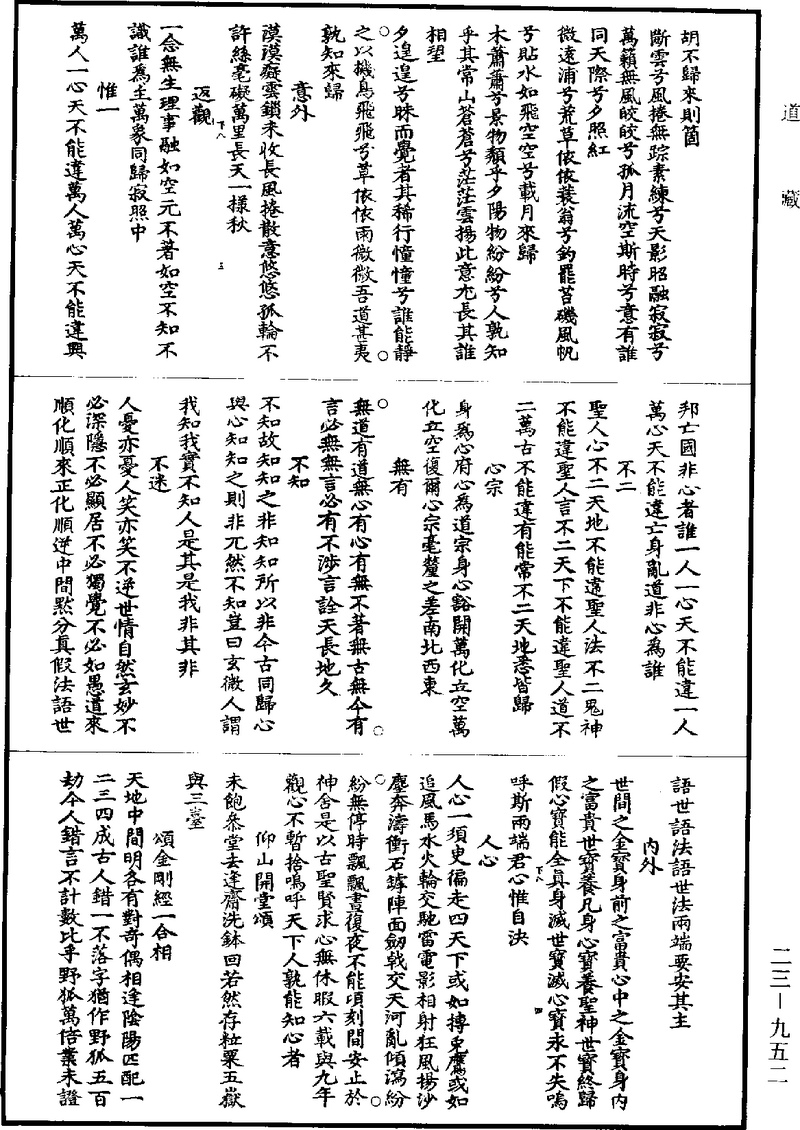 道藏
胡不歸來則箇
斷雲兮風捲無踪素練兮天影昭融寂寂兮
萬籟無風皎皎兮孤月流空斯時兮意有誰
同天際兮夕照紅
微遠浦兮荒草依依蓑翁兮釣罷苔磯風帆
兮貼水如飛空空兮載月來歸
木蕭蕭兮景物頹乎夕陽物紛紛兮人孰知
乎其常山蒼蒼兮茫茫雲揚此意尢長其誰
相望
夕遑遑兮昧而覺者其稀行憧憧兮誰能靜
之以機鳥飛飛兮草依依雨微微吾道甚夷
孰知來歸
意外
漠漠癡雲鎖未收長風捲散意悠悠孤輪不
許絲毫礙萬里長天一樣秋
返觀
一念無生理事融如空元不著如空不知不
識誰為主萬象同歸寂照中
惟一
萬人一心天不能違萬人萬心天不能違興
邦亡國非心者誰一人一心天不能違一人
萬心天不能違亡身亂道非心為誰
不二
聖人心不二天地不能違聖人法不二鬼神
不能違聖人言不二天下不能違聖人道不
二萬古不能違有能常不二天地悉皆歸
心宗
身為心府心為道宗身心豁開萬化立空萬
化立空復爾心宗毫釐之差南北西東
無有
無道有道無心有心有無不著無古無今有
言必無無言必有不涉言詮天長地久
不知
不知故知知之非知知所以非今古同歸心
與心知知之則非兀然不知豈曰玄微人謂
我知我實不知人是其是我非其非
不迷
人憂亦憂人笑亦笑不逆世情自然玄妙不
必深隱不必顯居不必獨覺不必如愚道來
順化順來正化順逆中間默分真假法語世
語世語法語世法兩端要安其主
內外
世間之金寶身前之富貴心中之金寶身內
之富貴世寶養凡身心寶養聖神世寶終歸
假心寶能全真身滅世寶滅心寶永不失嗚
呼斯兩端君心惟自決
人心
人心一須臾徧走四天下或如摶兔鷹或如
追風馬水火輪交馳雷電影相射狂風揚沙
塵奔濤衝石罅陣面劒戟交天河亂傾瀉紛
紛無停時飄飄晝復夜不能頃刻間安止於
神舍是以古聖賢求心無休暇六載與九年
觀心不暫捨嗚呼天下人孰能知心者
仰山開堂頌
未飽叅堂去逢齋洗鉢回若然存粒粟五嶽
與三臺
頌金剛經一合相
天地中間明各有對奇偶相逢陰陽匹配一
二三四成古人錯一不落字猶作野狐五百
劫今人錯言不計數比乎野狐萬倍業未證
二三—九五二